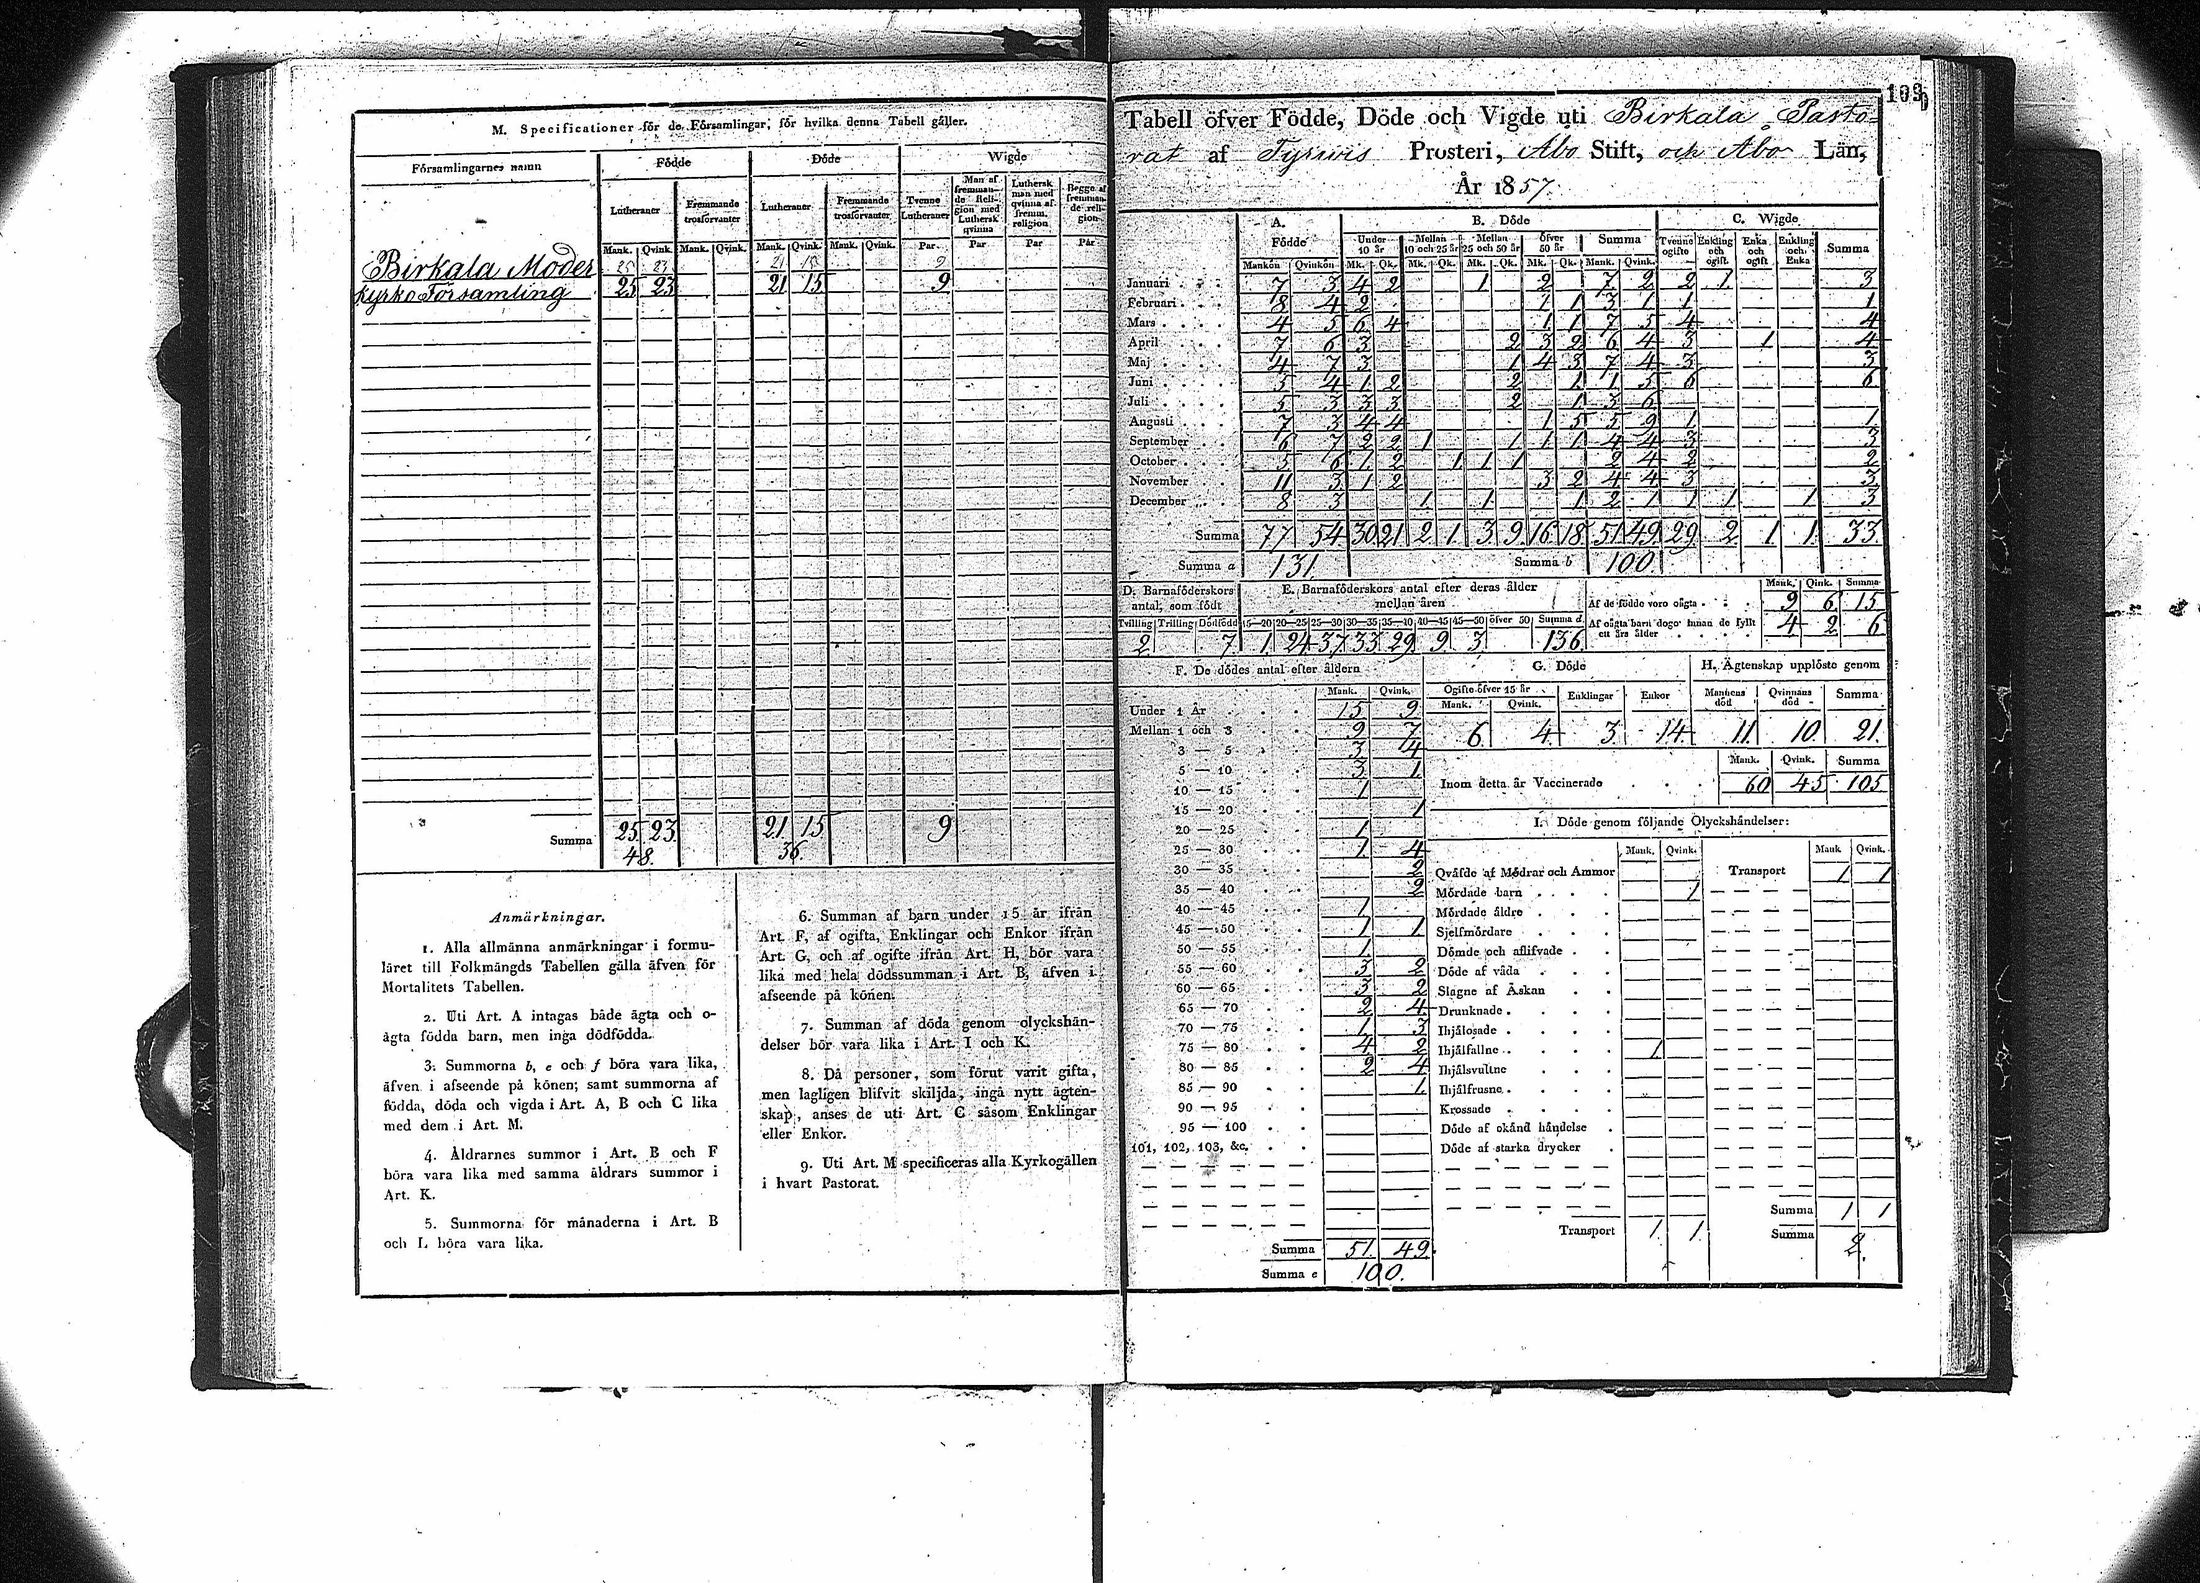 M. Specificationer för de Församlingar, för hvilka denna Tabell gäller.
Församlingarnes namn Födde Döde Wigde
Lutheraner Fremmande trosförvanter Lutheraner Fremmande trosförvanter Tvenne Lutheraner Man af fremmande Religion med Luthersk qvinna Luthersk man med qvinna af fremm. religion Begge af fremmande religion
Mank. Qvink. Mank. Qvink. Mank. Qvink. Mank. Qvink. Par Par Par Par
Birkala Moder 25 23 21 15 9
kyrko Församling 25 23 21 15 9
Summa 25 23 21 15 9
48. 36.
Anmärkningar.
1. Alla allmänna anmärkningar i formu-
läret till Folkmängds Tabellen gälla äfven för
Mortalitets Tabellen.
2. Uti Art. A intagas både ägta och o-
ägta födda barn, men inga dödfödda.
3. Summorna b, e och f böra vara lika,
äfven i afseende på könen; samt summorna af
födda, döda och vigda i Art. A, B och C lika
med dem i Art. M.
4. Åldrarnes summor i Art. B och F
böra vara lika med samma åldrars summor i
Art. K.
5. Summorna för månaderna i Art. B
och L böra vara lika.
6. Summan af barn under 15 år ifrån
Art. F, af ogifta, Enklingar och Enkor ifrån
Art. G, och af ogifte ifrån Art. H, bör vara
lika med hela dödssumman i Art. B, äfven i
afseende på könen.
7. Summan af döda genom olyckshän-
delser bör vara lika i Art. I och K.
8. Då personer, som förut varit gifta,
men lagligen blifvit skiljda, ingå nytt ägten-
skap, anses de uti Art. C såsom Enklingar
eller Enkor.
9. Uti Art. M specificeras alla Kyrkogällen
i hvart Pastorat.
103
Tabell öfver Födde, Döde och Vigde uti Birkala Pasto-
rat af Tyrwis Prosteri, Åbo Stift, och Åbo Län,
År 1857.
A. Födde B. Döde C. Wigde
Under 10 år Mellan 10 och 25 år Mellan 25 och 50 år Öfver 50 år Summa Tvenne ogifte Enkling och ogift Enka och ogift Enkling och Enka Summa
Mankön Qvinkön Mk. Qk. Mk. Qk. Mk. Qk. Mk. Qk. Mank. Qvink.
Januari 7 3 4 2 1 2 7 2 2 1 3
Februari 8 4 2 1 1 3 1 1 1
Mars 4 5 6 4 1 1 7 5 4 4
April 7 6 3 2 3 2 6 4 3 1 4
Maj 4 7 3 1 4 3 7 4 3 3
Juni 5 4 1 2 2 1 1 5 6 6
Juli 5 3 3 3 2 1 3 6
Augusti 7 3 4 4 1 5 5 9 1 1
September 6 7 2 2 1 1 1 1 4 4 3 3
October 5 6 1 2 1 1 1 2 4 2 2
November 11 3 1 2 3 2 4 4 3 3
December 8 3 1 1 1 2 1 1 1 1 3
Summa 77 54 30 21 2 1 3 9 16 18 51 49 29 2 1 1 33
Summa a 131. Summa b 100.
D. Barnaföderskors antal, som födt E. Barnaföderskors antal efter deras ålder mellan åren
Mank. Qink. Summa
Af de födde voro oägta 9 6 15
Af oägta barn dogo innan de fyllt ett års ålder 4 2 6
Tvilling Trilling Dödfödd 15—20 20—25 25—30 30—35 35—40 40—45 45—50 öfver 50 Summa d
2 7 1 24 37 33 29 9 3 136.
F. De dödes antal efter åldern
Mank. Qvink.
Under 1 År 15 9
Mellan 1 och 3 9 7
3 — 5 3 4
5 — 10 3 1
10 — 15 1
15 — 20 1
20 — 25 1
25 — 30 1 4
30 — 35 2
35 — 40 2
40 — 45 1
45 — 50 1 1
50 — 55 1
55 — 60 3 2
60 — 65 3 2
65 — 70 2 4
70 — 75 1 3
75 — 80 4 2
80 — 85 2 4
85 — 90 1
90 — 95
95 — 100
101, 102, 103, &c.
Summa 51. 49.
Summa e 100.
G. Döde
Ogifte öfver 15 år Enklingar Enkor
Mank. Qvink.
6. 4. 3. 14.
H. Ägtenskap upplöste genom
Mannens död Qvinnans död Summa
11. 10. 21.
Mank. Qvink. Summa
Inom detta år Vaccinerade 60 45 105
I. Döde genom följande Olyckshändelser:
Mank. Qvink. Mank. Qvink.
Qväfde af Mödrar och Ammor Transport 1 1
Mördade barn 1
Mördade äldre
Sjelfmördare
Dömde och aflifvade
Döde af våda
Slagne af Åskan
Drunknade
Ihjälosade
Ihjälfallne 1
Ihjälsvultne
Ihjälfrusne
Krossade
Döde af okänd händelse
Döde af starka drycker
Summa 1 1
Transport 1. 1. Summa 2.